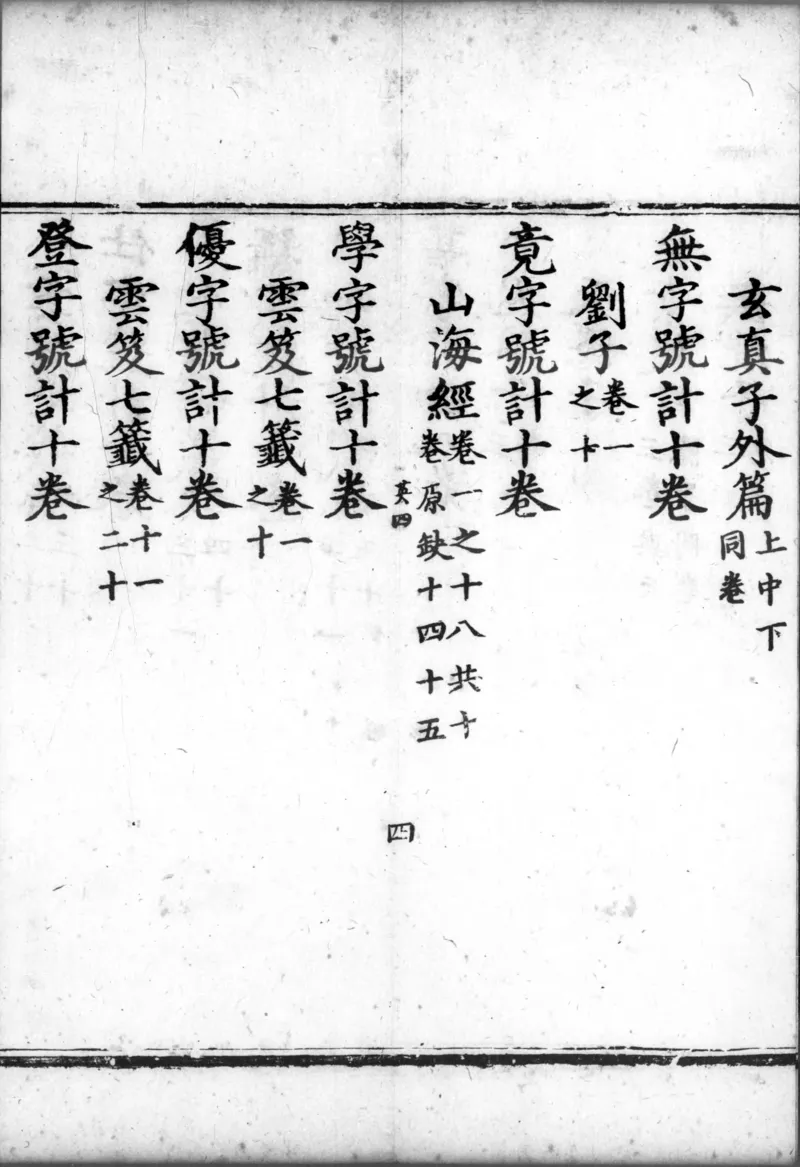 玄真子外篇上中下同卷
無字號計十卷
劉子卷一之十
竟字號計十卷
山海經卷一之十八共十卷原缺十四十五
英四
四
學字號計十卷
雲笈七籤卷一之十
優字號計十卷
雲笈七籤卷十一之二十
登字號計十卷